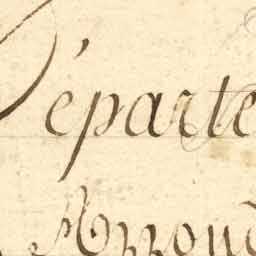 Départe
Arrond